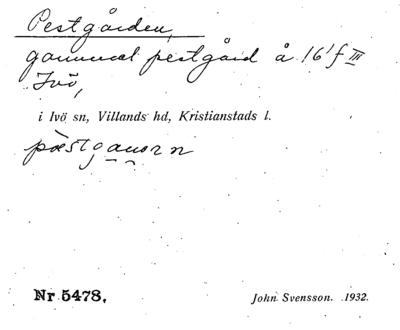 Pestgården,
gammal pestgård å 16'f III
Ivö,
i Ivö sn, Villands hd, Kristianstads l.
Nr 5478.
John Svensson. 1932.